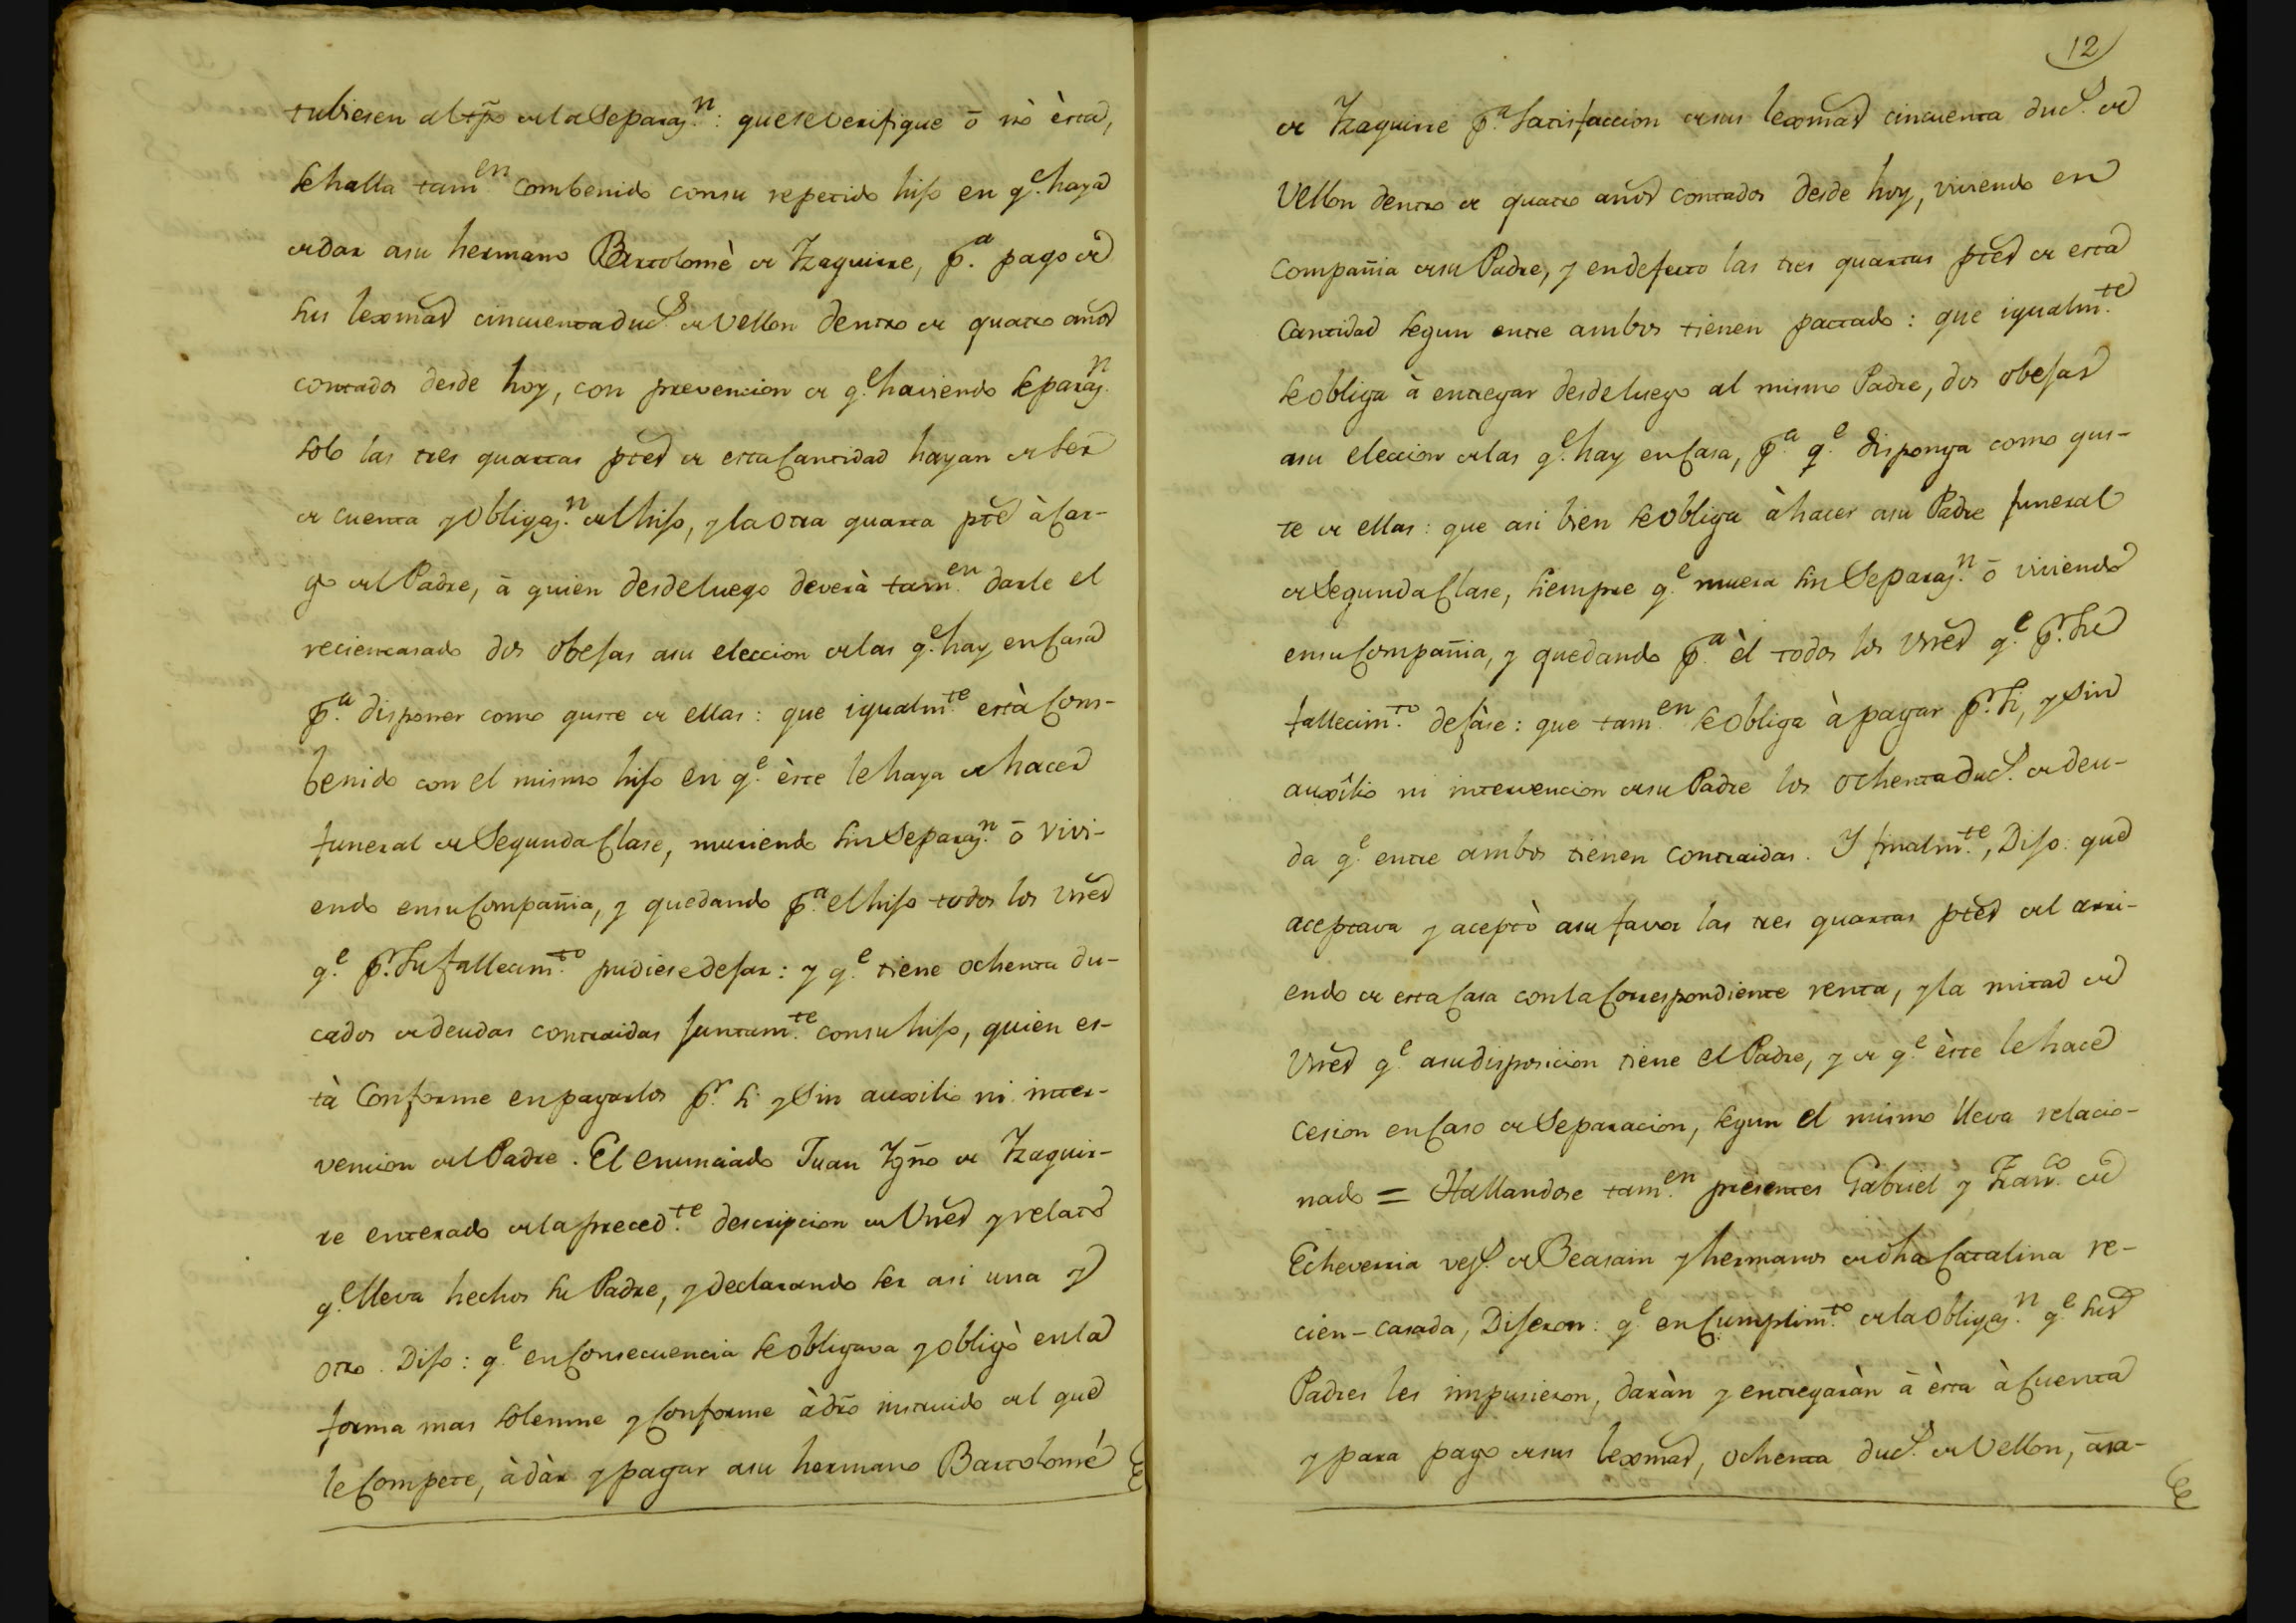 tubiesen al tpõ de la Separaz.n: que se verifique ō nò èsta,
se halla tam.en combenido con su repetido hijo en q.e haya
de dar a su hermano Bartolomè de Yzaguirre, p.a pago de
sus lexmas cincuenta duc.s de Vellon dentro de quatro años
contados desde hoy, con prevencion de q.e haviendo separaz.n
solo las tres quartas ptes de esta Cantidad hayan de ser
de cuenta y Obligaz.n del hijo, y la otra quarta pte à Car-
go del Padre, à quien desde luego deverà tam.en darle el
reciencasado dos obejas a su eleccion de las q.e hay en Casa
p.a disponer como guste de ellas: que igualm.te està Com-
benido con el mismo hijo en q.e èste le haya de hacer
funeral de Segunda Clase, muriendo sin Separaz.n ō vivi-
endo en su Compañia, y quedando p.a el hijo todos los vnes
q.e p.r su fallecim.to pudiese dejar: y q.e tiene ochenta du-
cados de deudas contraidas juntam.te con su hijo, quien es-
tà Conforme en pagarlos p.r si y Sin auxilio ni inter-
vencion del Padre. El enunciado Juan Ygño de Yzaguir-
re enterado de la preced.te descripcion de Vnes y relato
q.e lleva hechos su Padre, y declarando ser asi una y
otro. Dijo: q.e en Consecuencia se obligava y obligò en la
forma mas solemne y Conforme à dr̃o instruido del que
le Compete, à dàr y pagar a su hermano Bartolomé
12
de Yzaguirre p.a Satisfaccion de sus lexmas cincuenta duc.s de
Vellon dentro de quatro años contados desde hoy, viviendo en
Compañia de su Padre, y en defecto las tres quartas ptes de esta
Cantidad segun entre ambos tienen pactado: que igualm.te
se obliga à entregar desde luego al mismo Padre, dos obejas
a su eleccion de las q.e hay en Casa, p.a q.e disponga como gus-
te de ellas: que asi bien se obliga à hacer a su Padre funeral
de Segunda Clase, siempre q.e muera sin Separaz.n ō viviendo
en su Compañia, y quedando p.a èl todos los Vnes q.e p.r su
fallecim.to dejàre: que tam.en se obliga à pagar p.r si, y Sin
auxîlio ni intervencion de su Padre los ochenta duc.s de deu-
da q.e entre ambos tienen contraidas. Y finalm.te, Dijo: que
aceptava y aceptò a su favor las tres quartas ptes del arri-
endo de esta Casa con la Correspondiente renta, y la mitad de
Vnes q.e a su disposicion tiene el Padre, y de q.e èste le hace
cesion en Caso de Separacion, segun el mismo lleva relacio-
nado = Hallandose tam.en presentes Gabriel y Fran.co de
Echeverria vez.s de Beasain y hermanos de dha Catalina re-
cien-casada, Dijeron: q.e en Cumplim.to de la Obligaz.n q.e sus
Padres les impusieron, daràn y entregaràn à èsta à Cuenta
y para pago de sus lexmas, ochenta duc.s de Vellon, à sa-